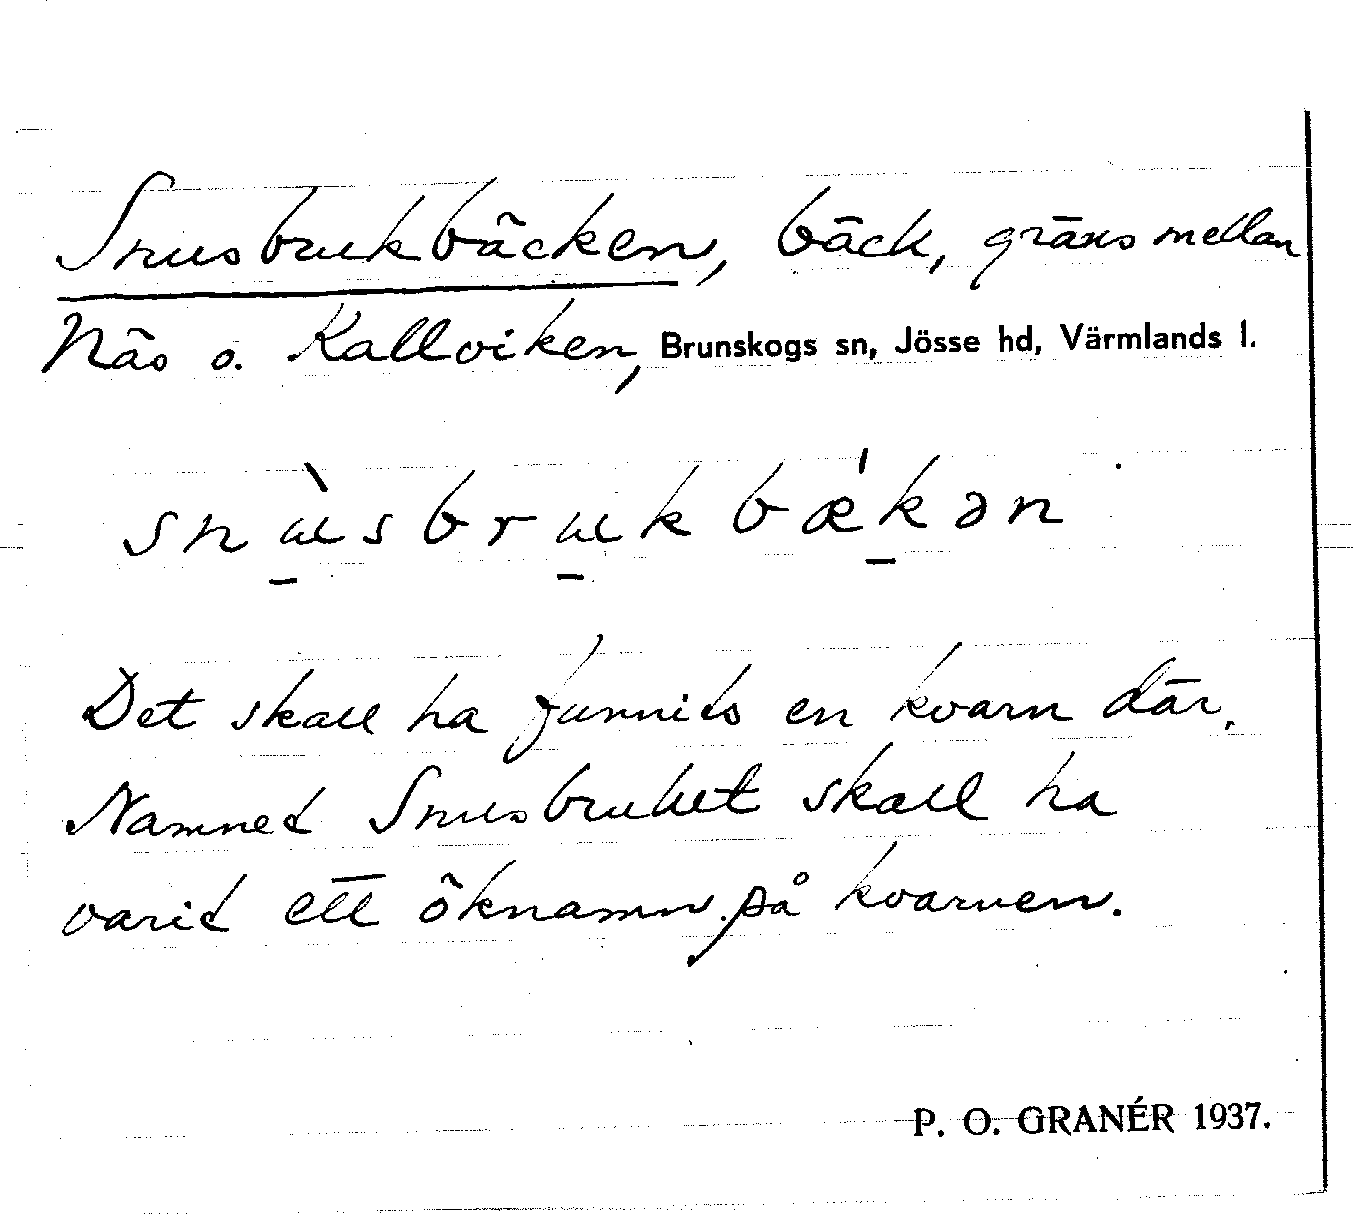 Snusbrukbäcken, bäck, gräns mellan
Näs o. Kallviken, Brunskogs sn, Jösse hd, Värmlands l.
snù̠sbru̠kbǽk̠ən
Det skall ha funnits en kvarn där.
Namnet Snusbruket skall ha
varit ett öknamn på kvarnen.
P. O. GRANÉR 1937.